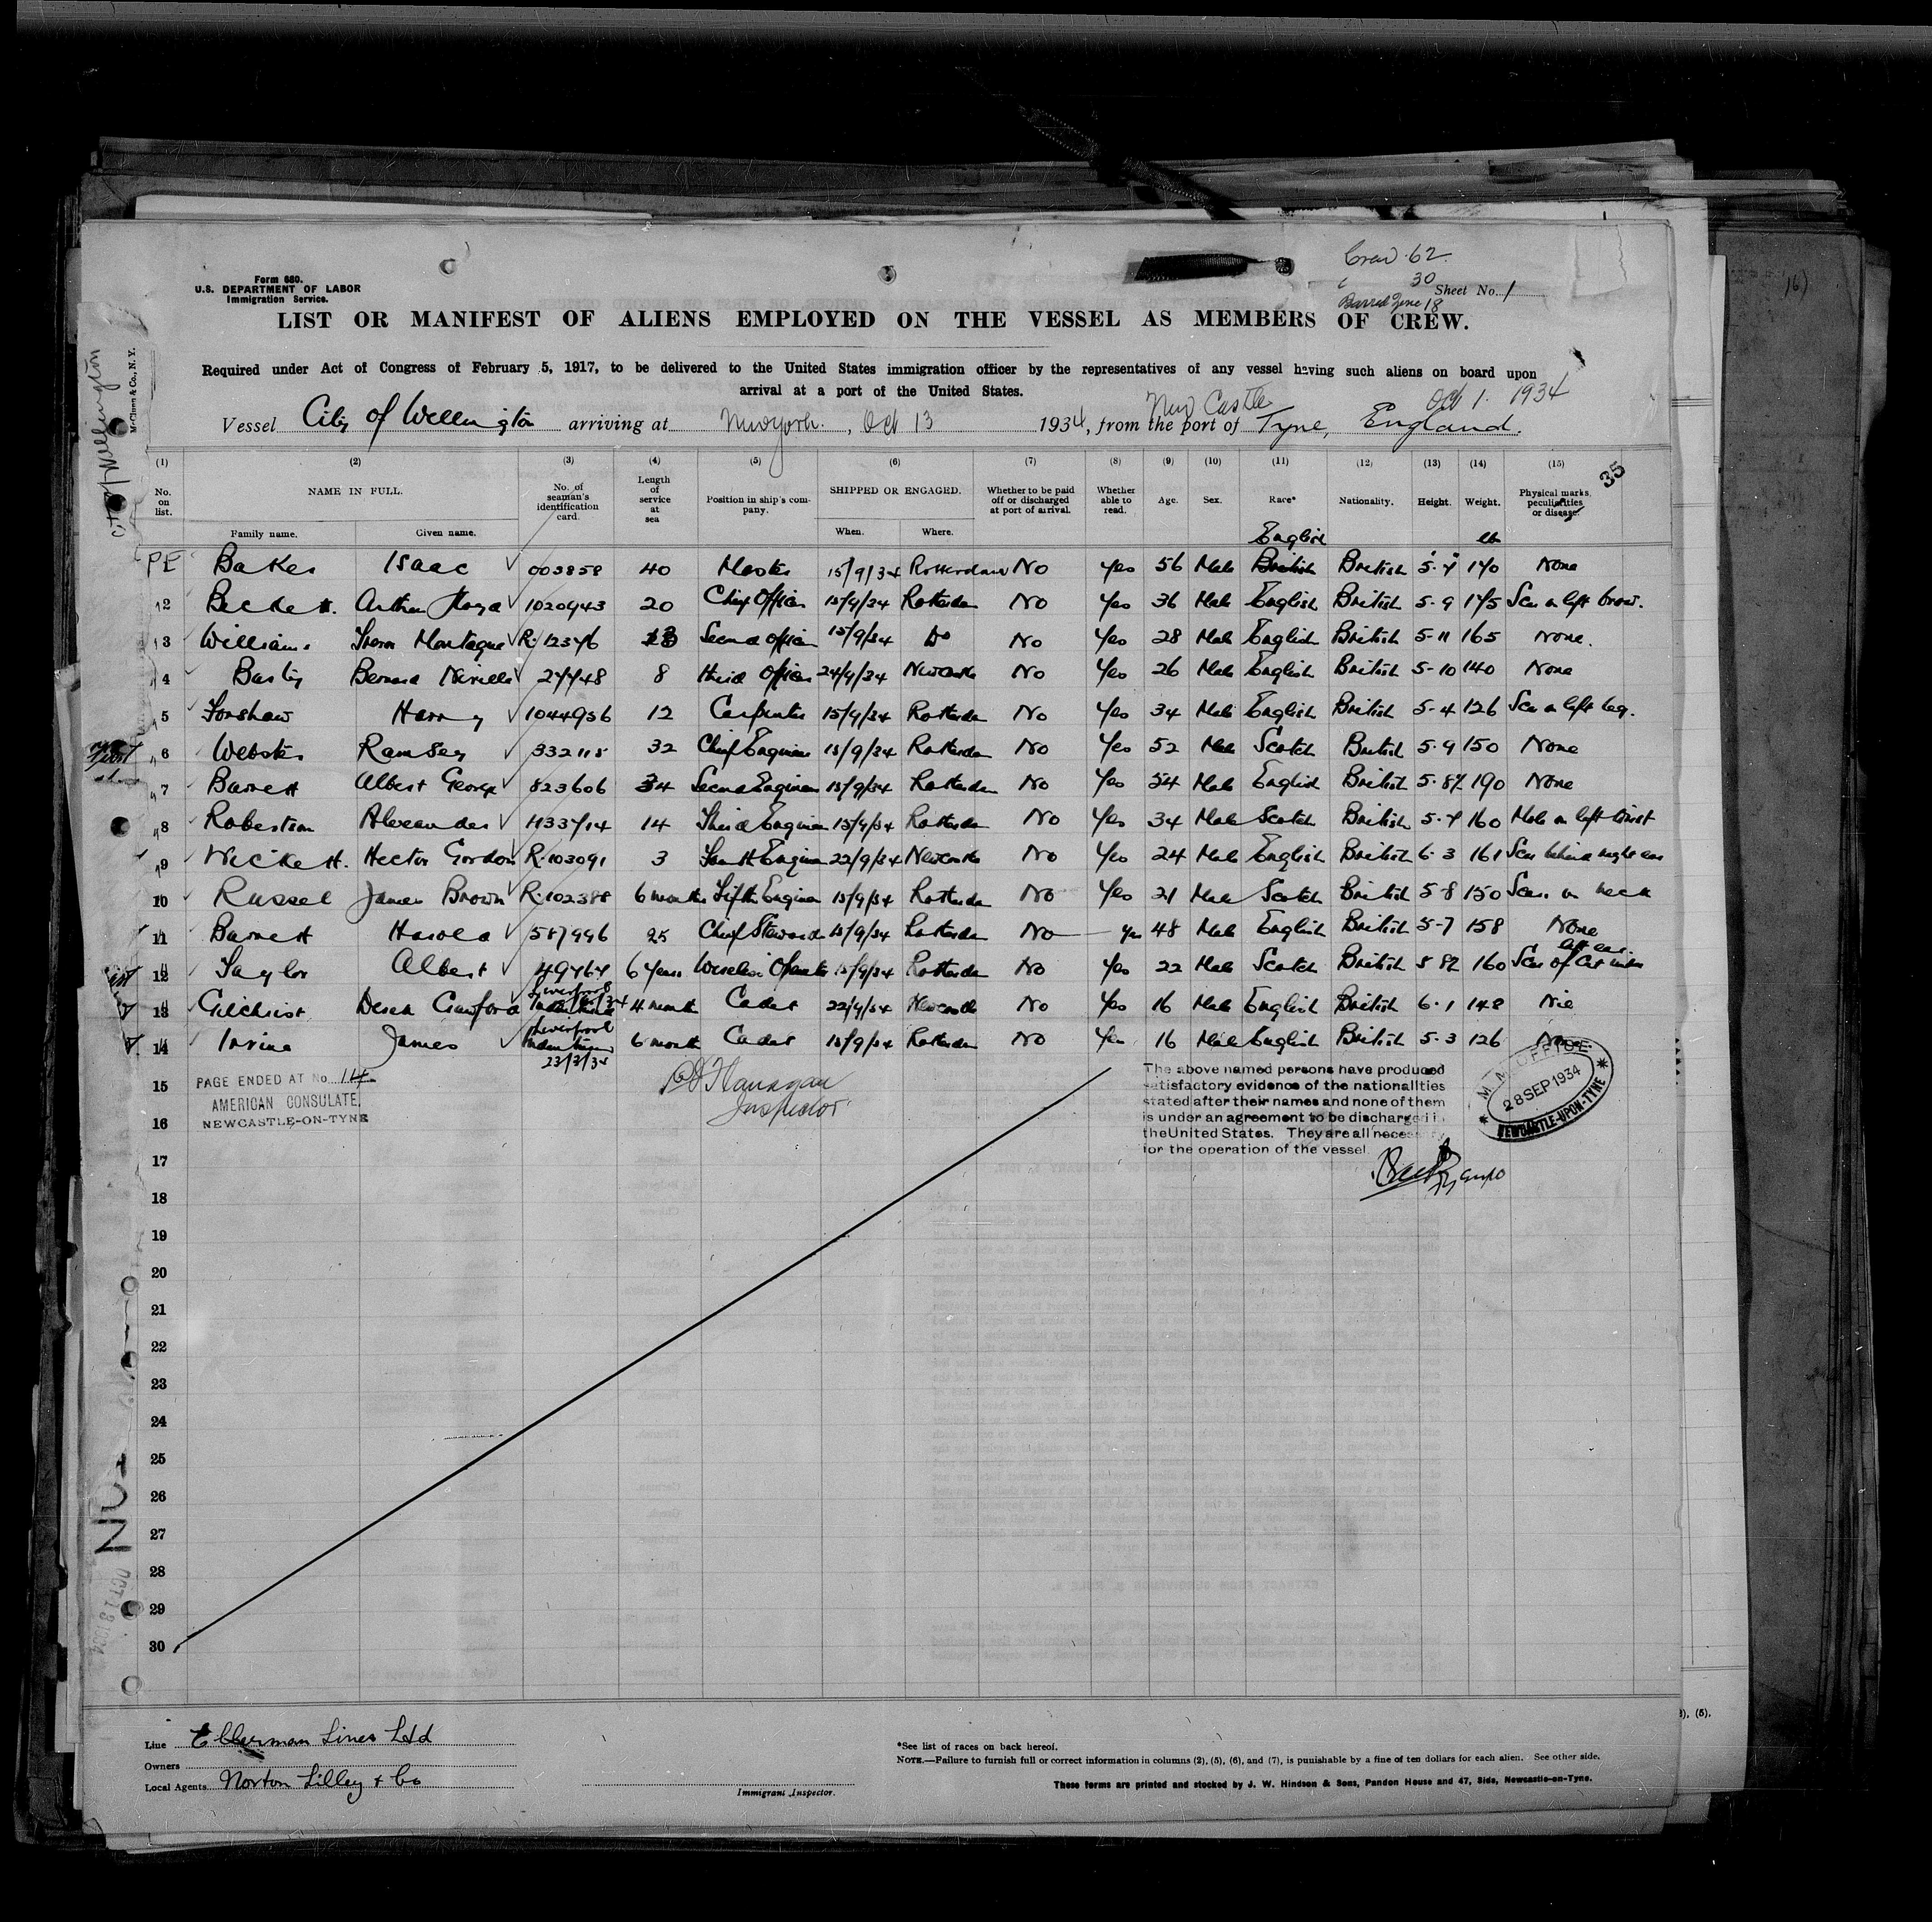 Crew 62.
30
Barred Zone 18
Sheet No. 1
Form 680.
U.S. DEPARTMENT OF LABOR
Immigration Service.
LIST OR MANIFEST OF ALIENS EMPLOYED ON THE VESSEL AS MEMBERS OF CREW.
Required under Act of Congress of February 5, 1917, to be delivered to the United States immigration officer by the representatives of any vessel having such aliens on board upon
arrival at a port of the United States.
New Castle Oct 1. 1934
Vessel City of Wellington arriving at New York. , Oct 13 1934, from the port of Tyne, England.
McClunn & Co., N. Y.
City of Wellington
(1) (2) (3) (4) (5) (6) (7) (8) (9) (10) (11) (12) (13) (14) (15)
35
No. on list. NAME IN FULL. Family name. Given name. No. of seaman's identification card. Length of service at sea Position in ship's company. SHIPPED OR ENGAGED. When. Where. Whether to be paid off or discharged at port of arrival. Whether able to read. Age. Sex. Race* Nationality. Height. Weight. Physical marks, peculiarities or disease.
English lb
PE Baker Isaac 003858 40 Master 15/9/34 Rotterdam No Yes 56 Male British British 5-7 170 None
2 Beckett. Arthur 1020943 20 Chief Officer 15/9/34 Rotterdam No Yes 36 Male English British 5-9 175 Scar on left brow.
3 Williams Montague R.12376 13 Second Officer 15/9/34 Do No Yes 28 Male English British 5-11 165 None.
4 Bernard Neville 27748 8 Third Officer 24/9/34 Newcastle No Yes 26 Male English British 5-10 140 None
5 Forshaw Harry 1044956 12 Carpenter 15/9/34 Rotterdam No Yes 34 Male English British 5-4 126 Scar on left leg.
6 Webster Ramsay 332115 32 Chief Engineer 15/9/34 Rotterdam No Yes 52 Male Scotch British 5-9 150 None
7 Barrett Albert George 823606 34 Second Engineer 15/9/34 Rotterdam No Yes 54 Male English British 5-8½ 190 None
8 Robertson Alexander 1133714 14 Third Engineer 15/9/34 Rotterdam No Yes 34 Male Scotch British 5-7 160 Mole on left wrist
9 Wickett. Hector Gordon R.103091 3 Fourth Engineer 22/9/34 Newcastle No Yes 24 Male English British 6-3 161 Scar behind right ear
10 Russel James Brown R.102388 6 months Fifth Engineer 15/9/34 Rotterdam No Yes 21 Male Scotch British 5-8 150 Scar on neck
11 Barrett Harold 587996 25 Chief Steward 15/9/34 Rotterdam No Yes 48 Male English British 5-7 158 None
left ear.
12 Taylor Albert 49764 6 Years Wireless Operator 15/9/34 Rotterdam No Yes 22 Male Scotch British 5 8½ 160 Scar of cut under
Liverpool
13 Gilchrist Derek Crawford Indentures 4 month Cadet 22/9/34 Newcastle No Yes 16 Male English British 6-1 148 Nil
Liverpool
14 Irvine James Indentures 6 month Cadet 15/9/34 Rotterdam No Yes 16 Male English British 5-3 126 None
23/3/34
15
PAGE ENDED AT No. 14
AMERICAN CONSULATE,
NEWCASTLE-ON-TYNE
Flanagan
Inspector
The above named persons have produced
satisfactory evidence of the nationalities
stated after their names and none of them
is under an agreement to be discharged i
the United States. They are all neces
for the operation of the vessel.
M.M. OFFICE
28 SEP 1934
NEWCASTLE-UPON-TYNE
16
17
18
19
20
21
22
23
24
25
26
27
28
29
30
OCT 13 1934
Line Ellerman Lines Ltd
Owners
Local Agents Norton Lilley & Co
Immigrant Inspector.
*See list of races on back hereof.
NOTE.—Failure to furnish full or correct information in columns (2), (5), (6), and (7), is punishable by a fine of ten dollars for each alien. See other side.
These forms are printed and stocked by J. W. Hindson & Sons, Pandon House and 47, Side, Newcastle-on-Tyne.
), (5).